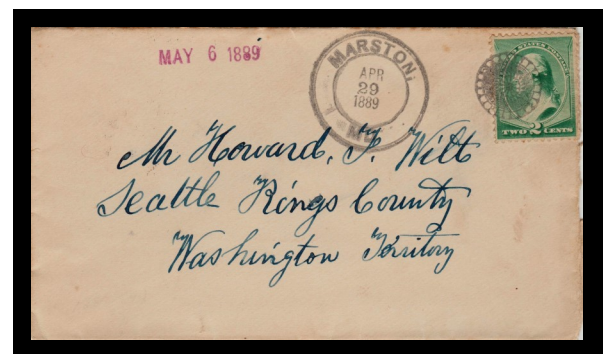 MAY 6 1889
MARSTON,
APR
29
1889
MD.
UNITED STATES POSTAGE
TWO 2 CENTS
Mr Howard, F. Wilt
Seattle Kings County
Washington Territory